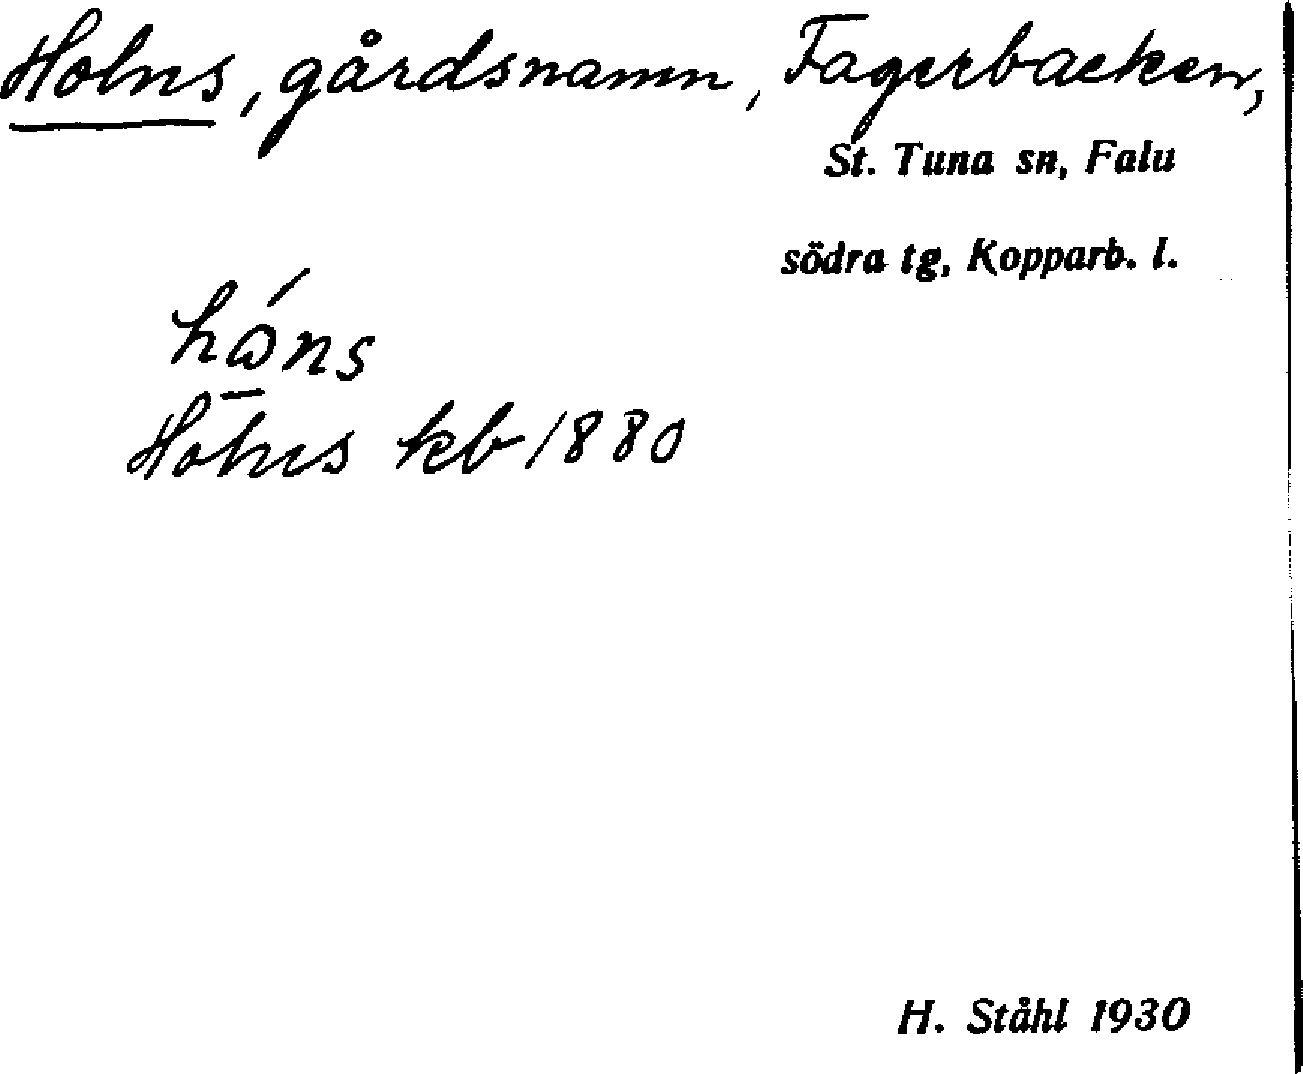 Holns, gårdsnamn, Fagerbacken,
St. Tuna sn, Falu
södra tg, Kopparb. l.
Holns kb 1880
H. Ståhl 1930